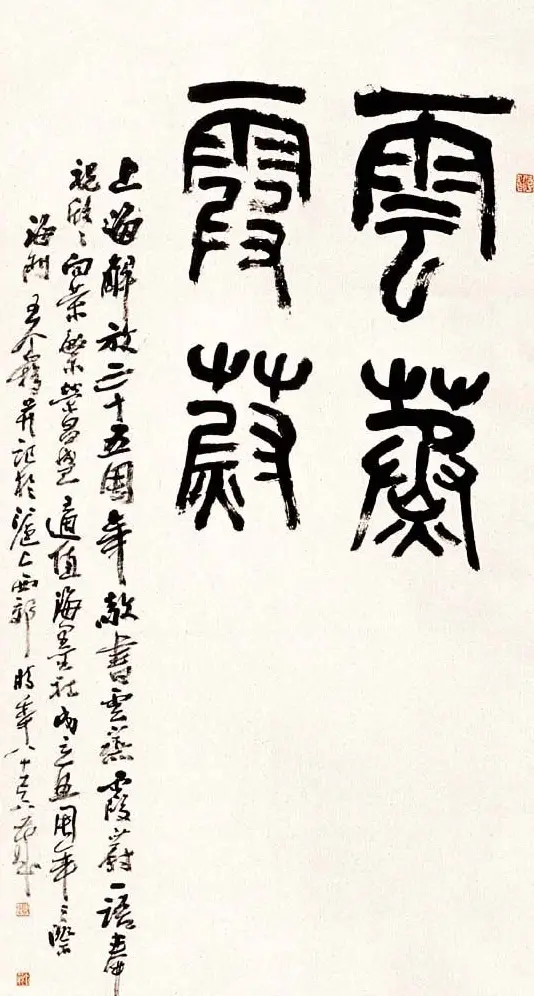 雲蒸
霞蔚
上海解放三十五周年敬書雲蒸霞蔚一語奉
祝欣〻向榮繁榮昌盛適值海墨社成立五周年之際
海門王个簃并記於滬上西郊時年八十